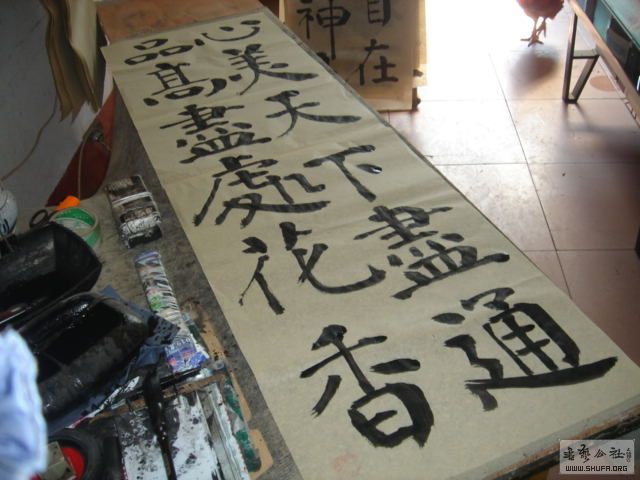 心美天下盡通
品髙盡處花香
自在
神
書藝公社
WWW.SHUFA.ORG